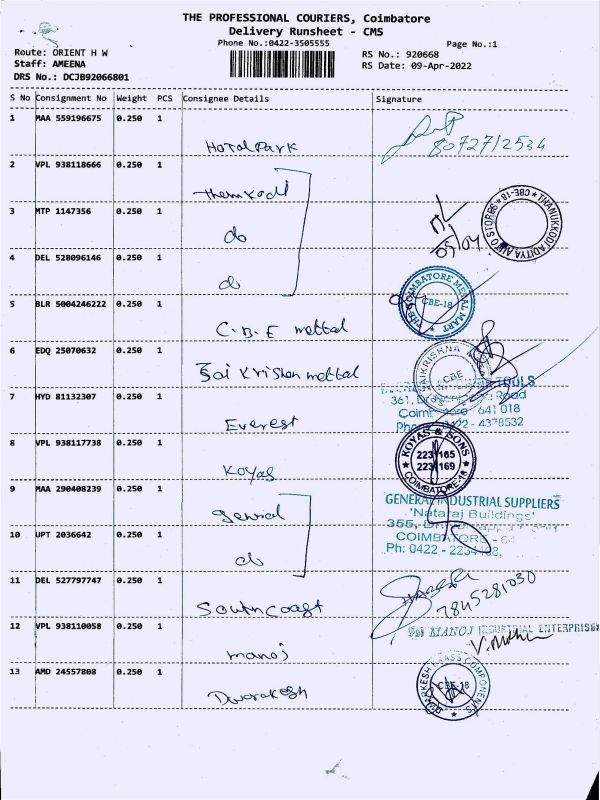 THE PROFESSIONAL COURIERS, Coimbatore
Delivery Runsheet - CMS
Phone No.:0422-3505555
Page No.:1
Route: ORIENT H W
RS No.: 920668
Staff: AMEENA
RS Date: 09-Apr-2022
DRS No.: DCJB92066801
S No Consignment No Weight PCS Consignee Details Signature
1 MAA 559196675 0.250 1
Hotal Park
80727/2534
2 VPL 938118666 0.250 1
3 MTP 1147356 0.250 1
do
09/04
THANUKKODI ADITYA AUTO STORES * CBE-18 *
4 DEL 528096146 0.250 1
do
5 BLR 5004246222 0.250 1
C.B.E mettal
THE COIMBATORE METAL MART
CBE-18
6 EDQ 25070632 0.250 1
Sai Krishan mettal
SAIKRISHNA
CBE
7 HYD 81132307 0.250 1
Everest
TOOLS
361, Road
641 018
0422 - 4378532
8 VPL 938117738 0.250 1
Koyas
KOYAS & SONS
223 165
223 169
COIMBATORE-18
9 MAA 290408239 0.250 1
General
GENERAL INDUSTRIAL SUPPLIERS
'Nataraj Buildings'
355,
COIMBATORE - 64
Ph: 0422 - 2234
10 UPT 2036642 0.250 1
do
11 DEL 527797747 0.250 1
South Coast
7845281030
12 VPL 938110058 0.250 1
manoj
For MANOJ INDUSTRIAL ENTERPRISES
13 AMD 24557808 0.250 1
Dwarakesh
DWARKESH BRASS COMPONENTS
CBE-18